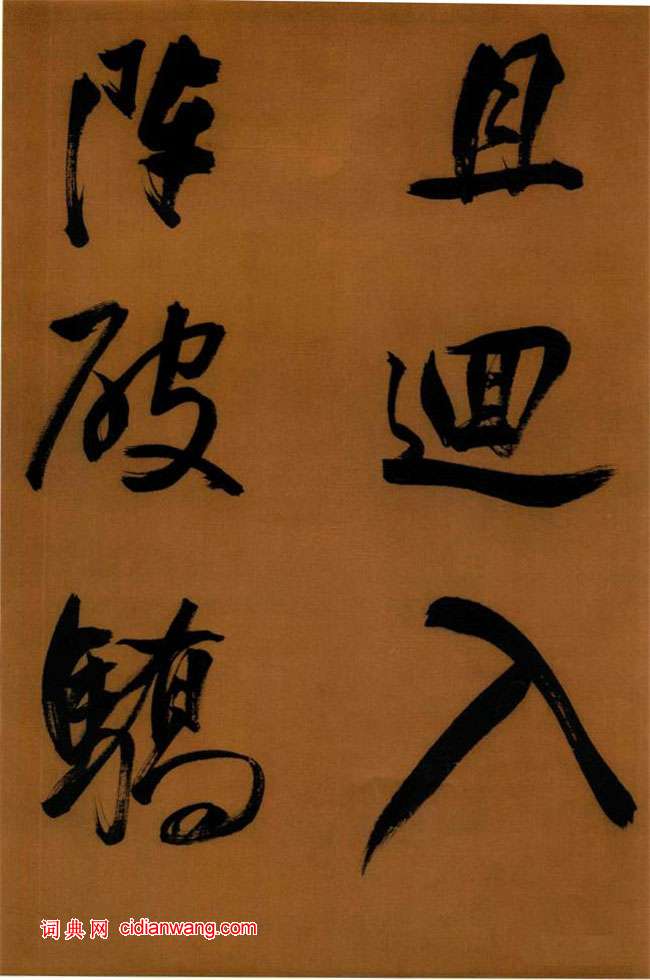 且迴入
陣破驕
词典网 cidianwang.com